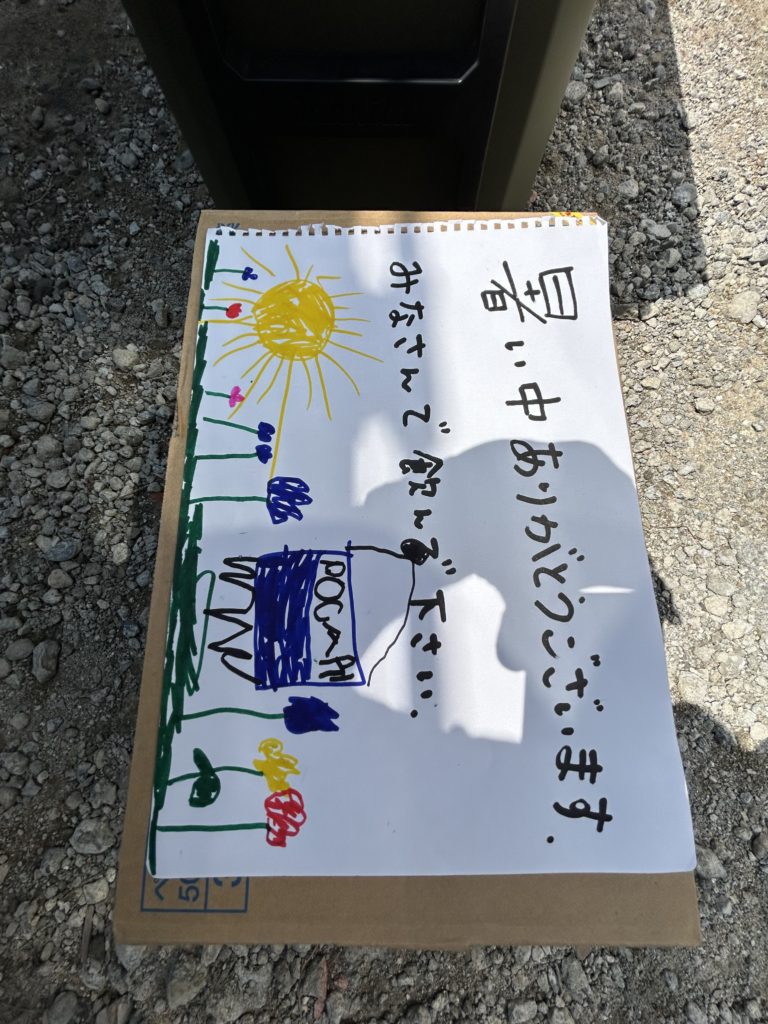 暑い中ありがとうございます.
みなさんで飲んで下さい.